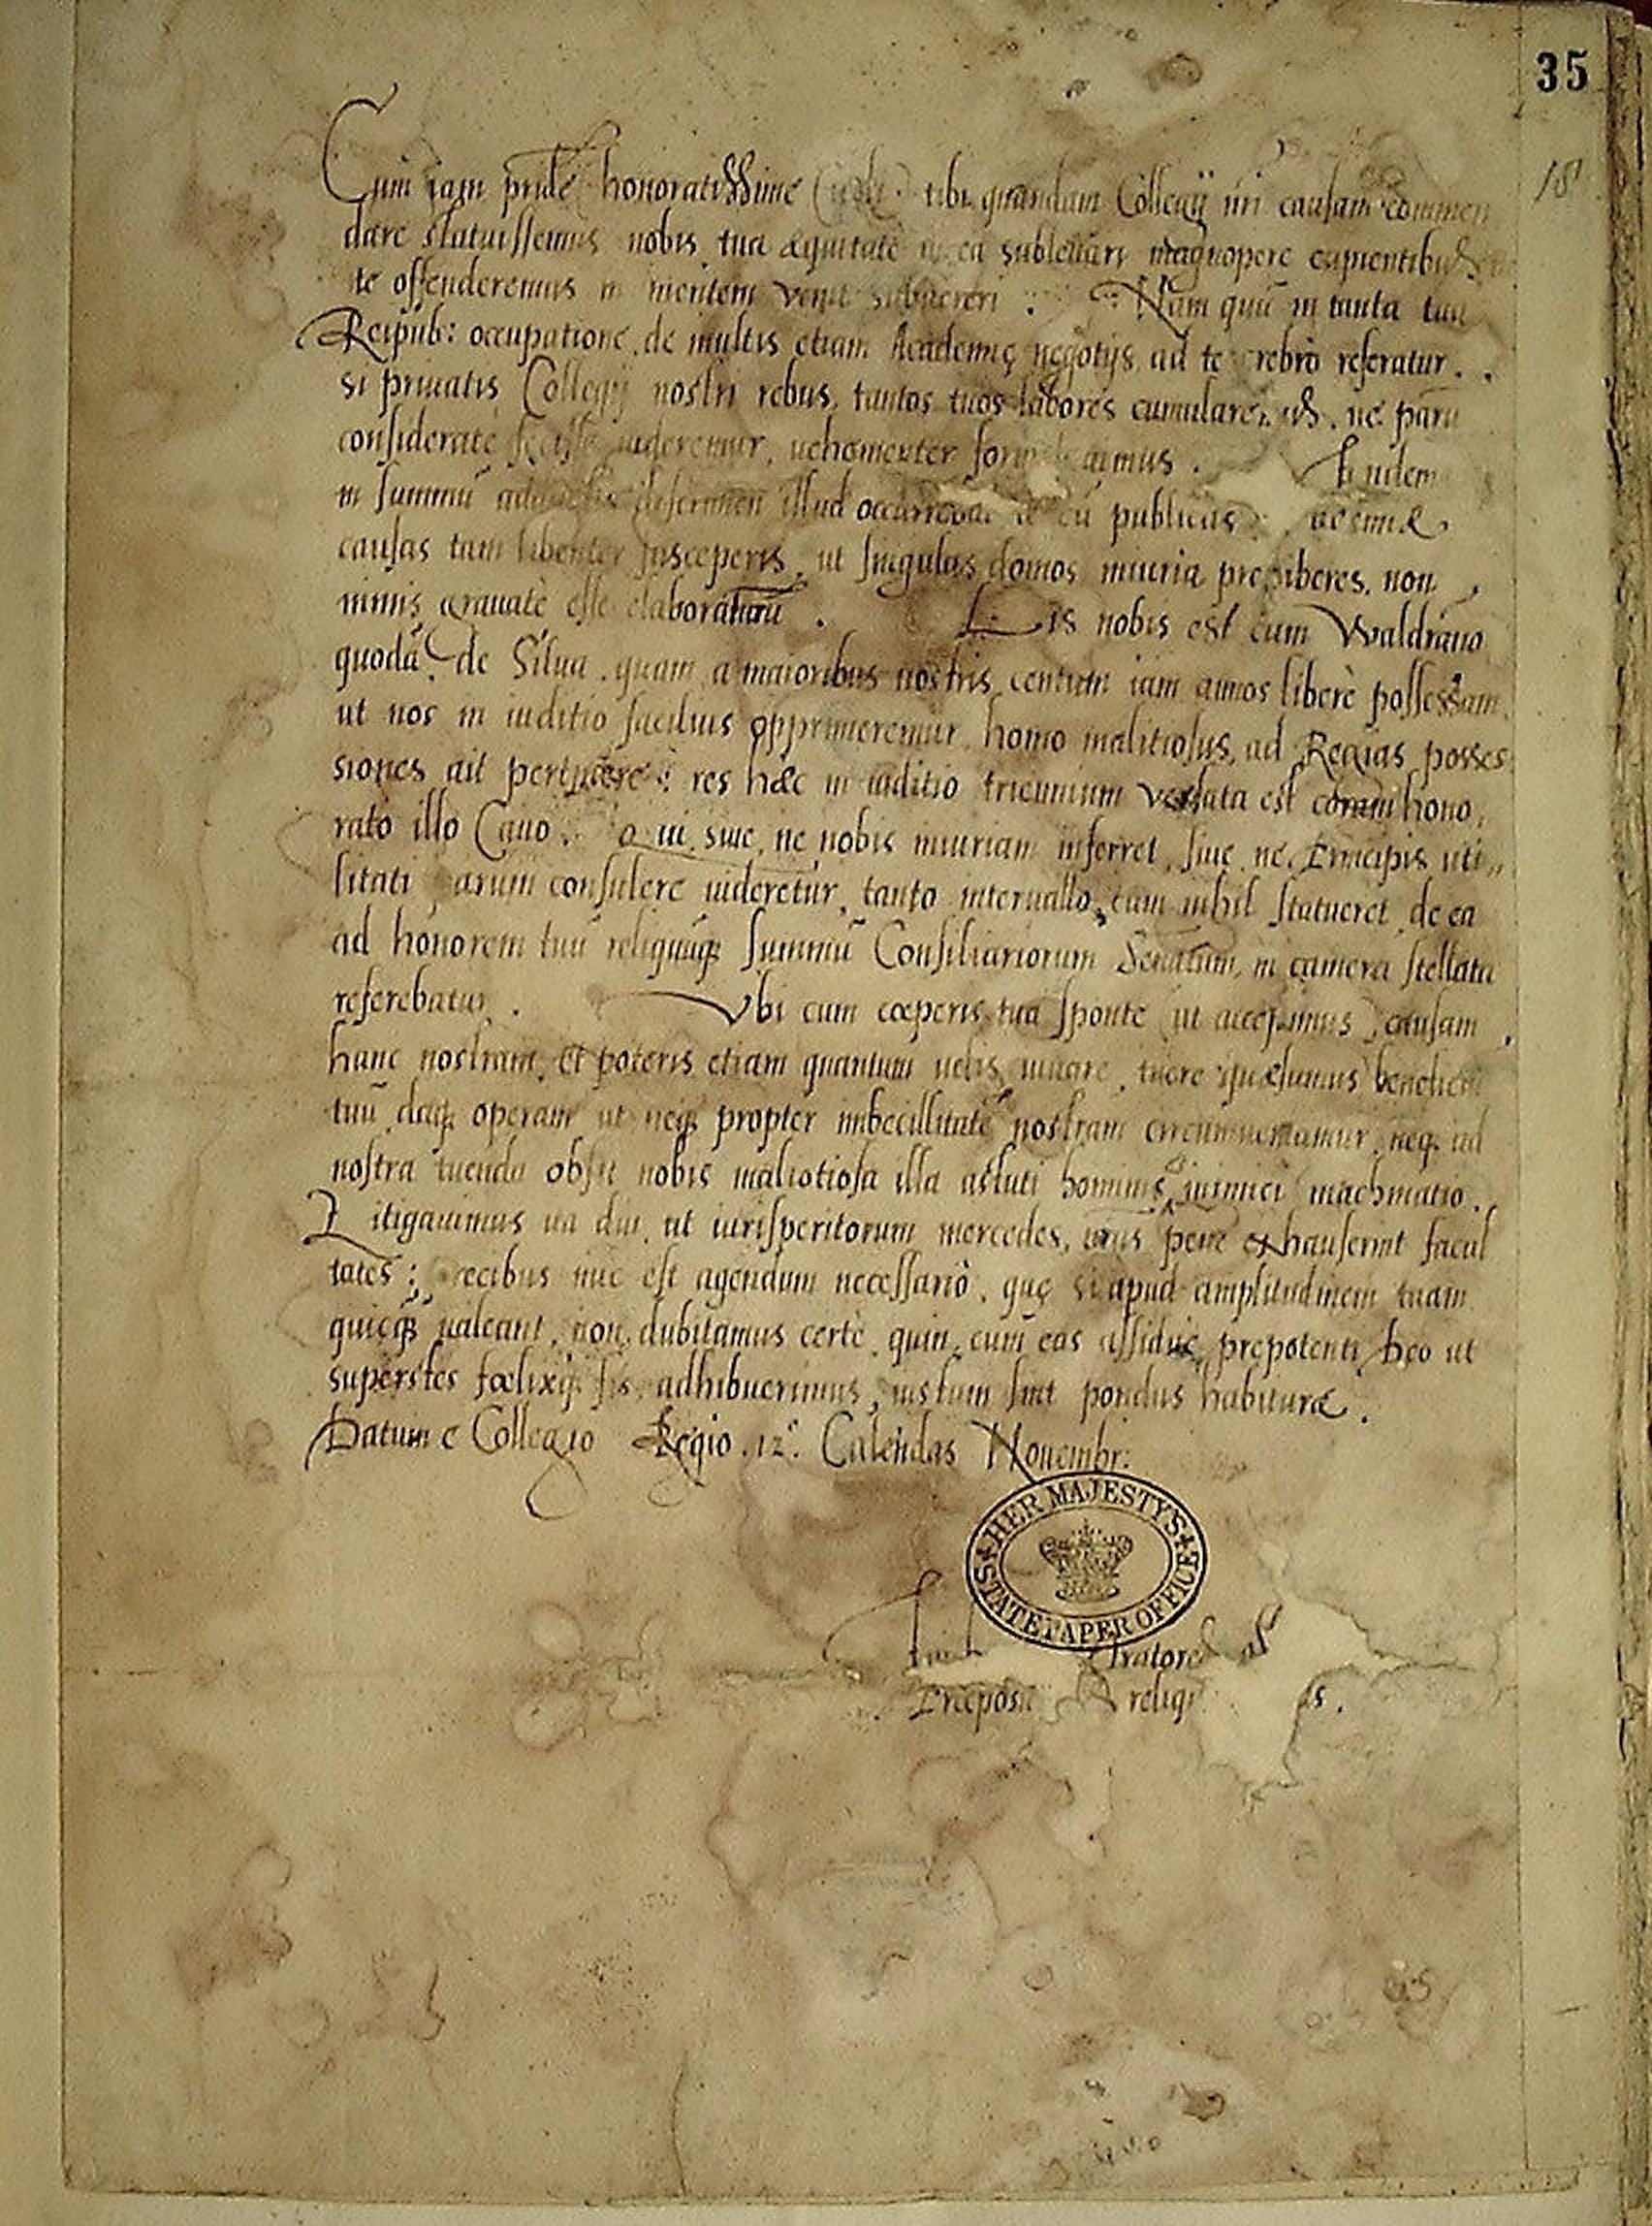 35
18
Cum iam pridē honoratissime tibi quandam Collegij nri causam commen
dare statuissemus nobis tua æquitate in ea subleuari magnopere cupientibus
te offenderemus in mentem venit subuereri . Nam quū in tanta tua
Reipub: occupatione, de multis etiam Academię negotijs ad te crebrò referatur.
si priuatis Collegij nostri rebus, tantos tuos labores cumularemus, ne parū
considerate fecisse uideremur, uehementer . Eidem
in summū discrimen illud occurrebat cū publicas
causas tam libenter susceperis, ut singulas domos iniuria prohiberes, non
nimis grauatè esse elaboraturū . Lis nobis est cum Waldrano
quodā de Silua, quam a maioribus nostris centum iam annos liberè possessam,
ut nos in iuditio facilius opprimeremur, homo malitiosus, ad Regias posses
siones ait pertinere: res hæc in iuditio triennium versata est coram hono,
rato illo Cauo. Qui, siue, ne nobis iniuriam inferret, siue ne Principis uti,,
litati parum consulere uideretur, tanto interuallo, cum nihil statueret, de ea
ad honorem tuū reliquūq; summū Consiliariorum Senatum, in camera stellata
referebatur . Vbi cum cœperis tua sponte (ut accepimus) causam
hanc nostram, et poteris etiam quantum uelis iuuare, tuere quæsumus
tuū, daq; operam ut neq; propter imbecillitatē nostram circumueniamur, neq; ad
nostra tuenda obsit nobis maliotiosa illa astuti hominis inimici machinatio.
Litigauimus ita diu, ut iurisperitorum mercedes, pene exhauserint facul
tates: precibus nūc est agendum necessariò, quę si apud amplitudinem tuam
quicq; ualeant, non dubitamus certè, quin cum eas assidue prepotenti Deo ut
superstes fœlixq; sis, adhibuerimus, iustum sint pondus habituræ.
Datum e Collegio Regio .12°. Calendas Nouembr:
HER MAJESTYS STATE PAPER OFFICE
Præposit